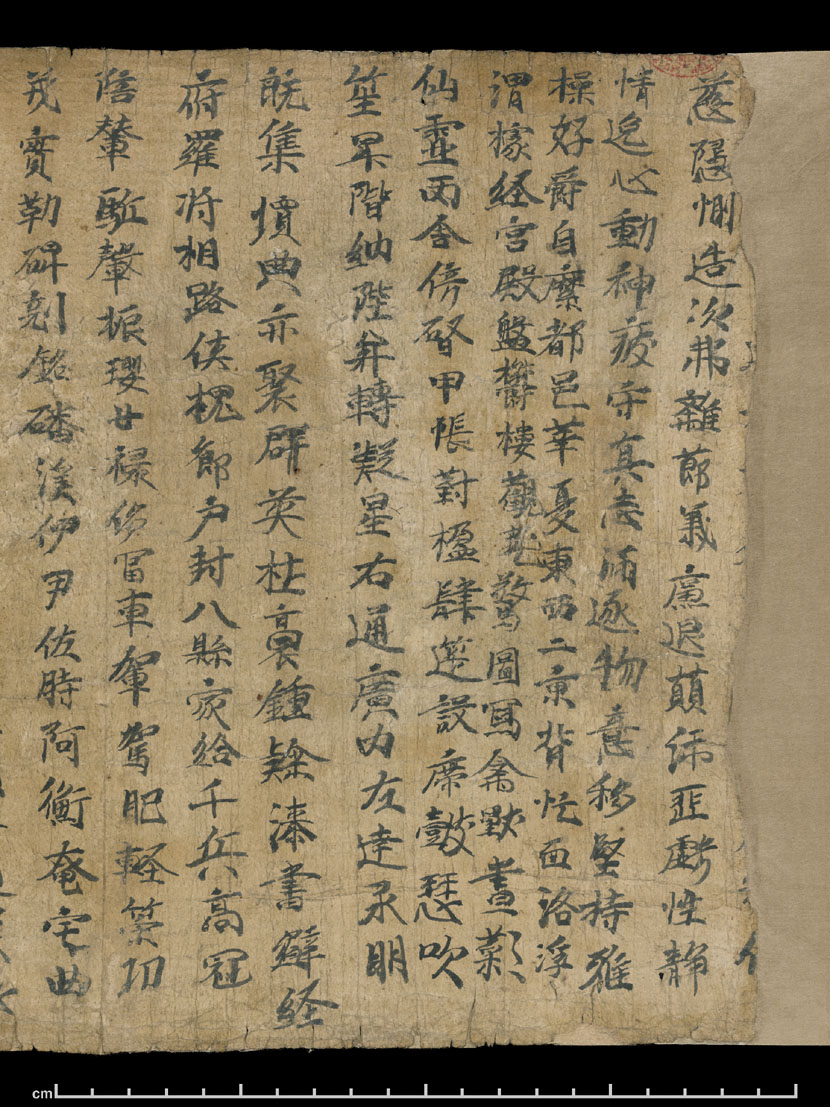 慈隱惻造次弗離節義廉退顛沛匪虧性静
情逸心動神疲守真志滿逐物意移堅持雅
操好爵自縻都邑華憂東西二京背忙面洛浮
渭據経宮殿盤欝樓觀飛驚圖寫禽獸畫彩
仙靈丙舍傍啓甲帳對楹肆筵設席鼓瑟吹
笙升階納陛弁轉疑星右通廣内左達承明
既集墳典亦聚群英杜稾鍾隸漆書壁経
府羅将相路俠槐卿户封八縣家給千兵高冠
陪輦駈轂振瓔世禄侈冨車駕肥軽策功
茂實勒碑刻銘磻溪伊尹佐時阿衡奄宅曲
cm